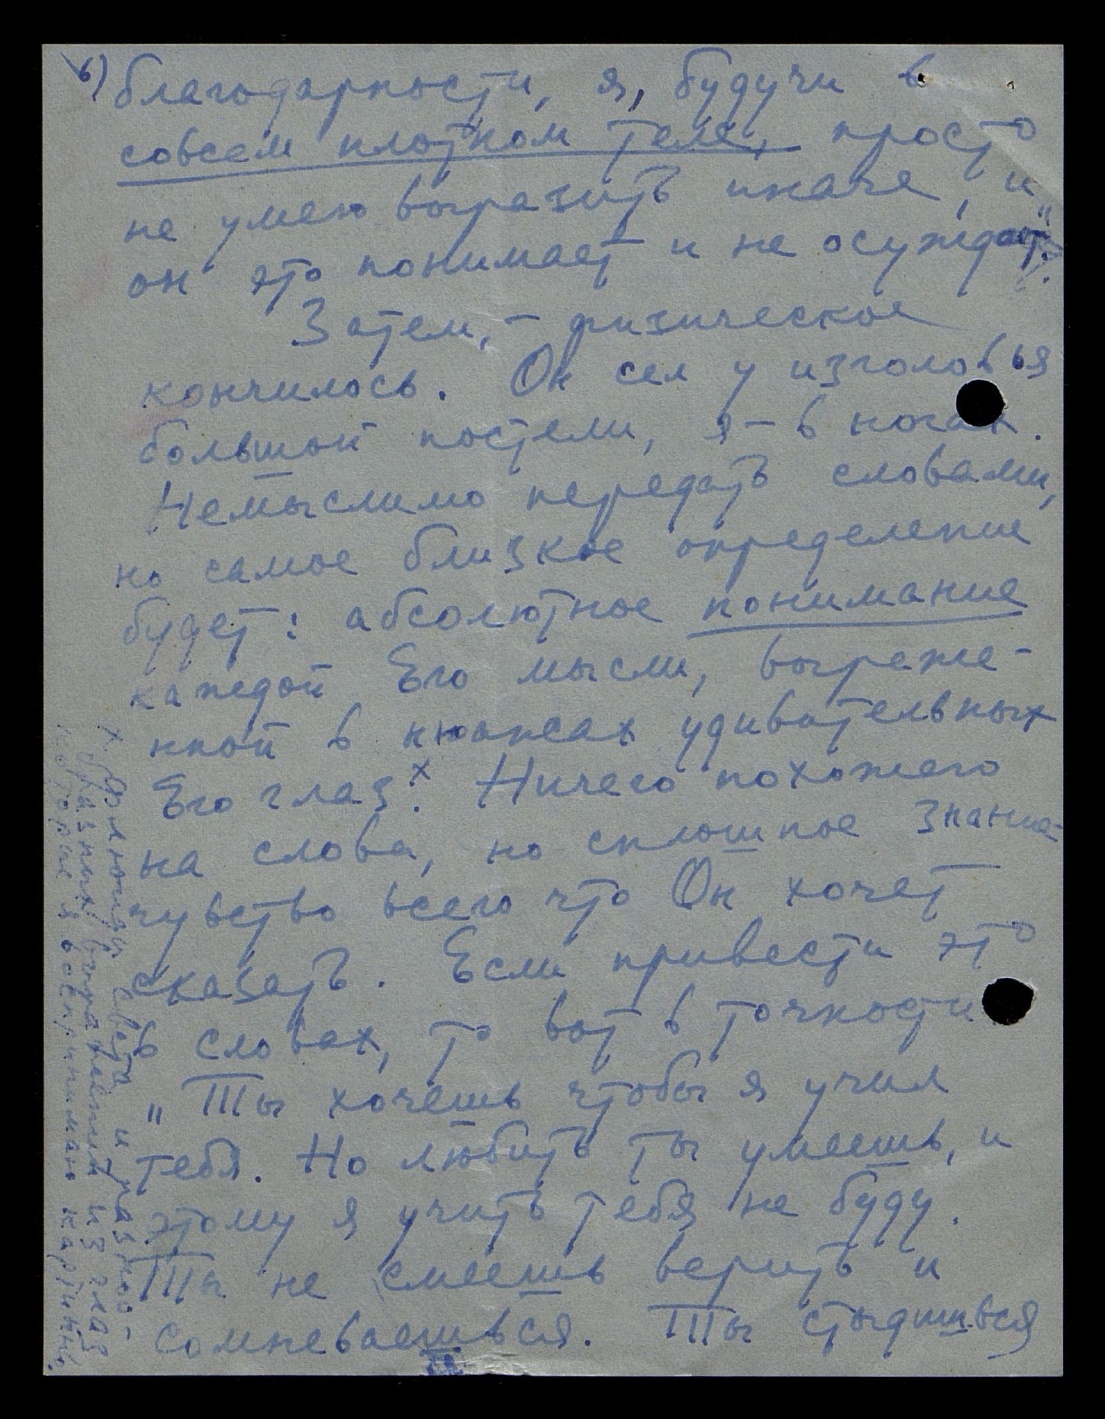 6) благодарности, я, будучи в
совсем плотном теле, просто
не умею выразить иначе, и
он это понимает и не осуждает".
Затем, – физическое
кончилось. Он сел у изголовья
большой постели, я – в ногах.
Немыслимо передать словами,
но самое близкое определение
будет: абсолютное понимание
каждой Его мысли, выраже-
нной в нюансах удивительных
Его глаз.х Ничего похожего
на слова, но сплошное знание-
чувство всего что Он хочет
сказать. Если привести это
в словах, то вот в точности
"Ты хочешь чтобы я учил
тебя. Но любить ты умеешь, и
этому я учить тебя не буду.
Ты не смеешь верить и
сомневаешься. Ты стыдишься
х света и разноо-
бразных выражений из глаз
которые я воспринимаю картины.